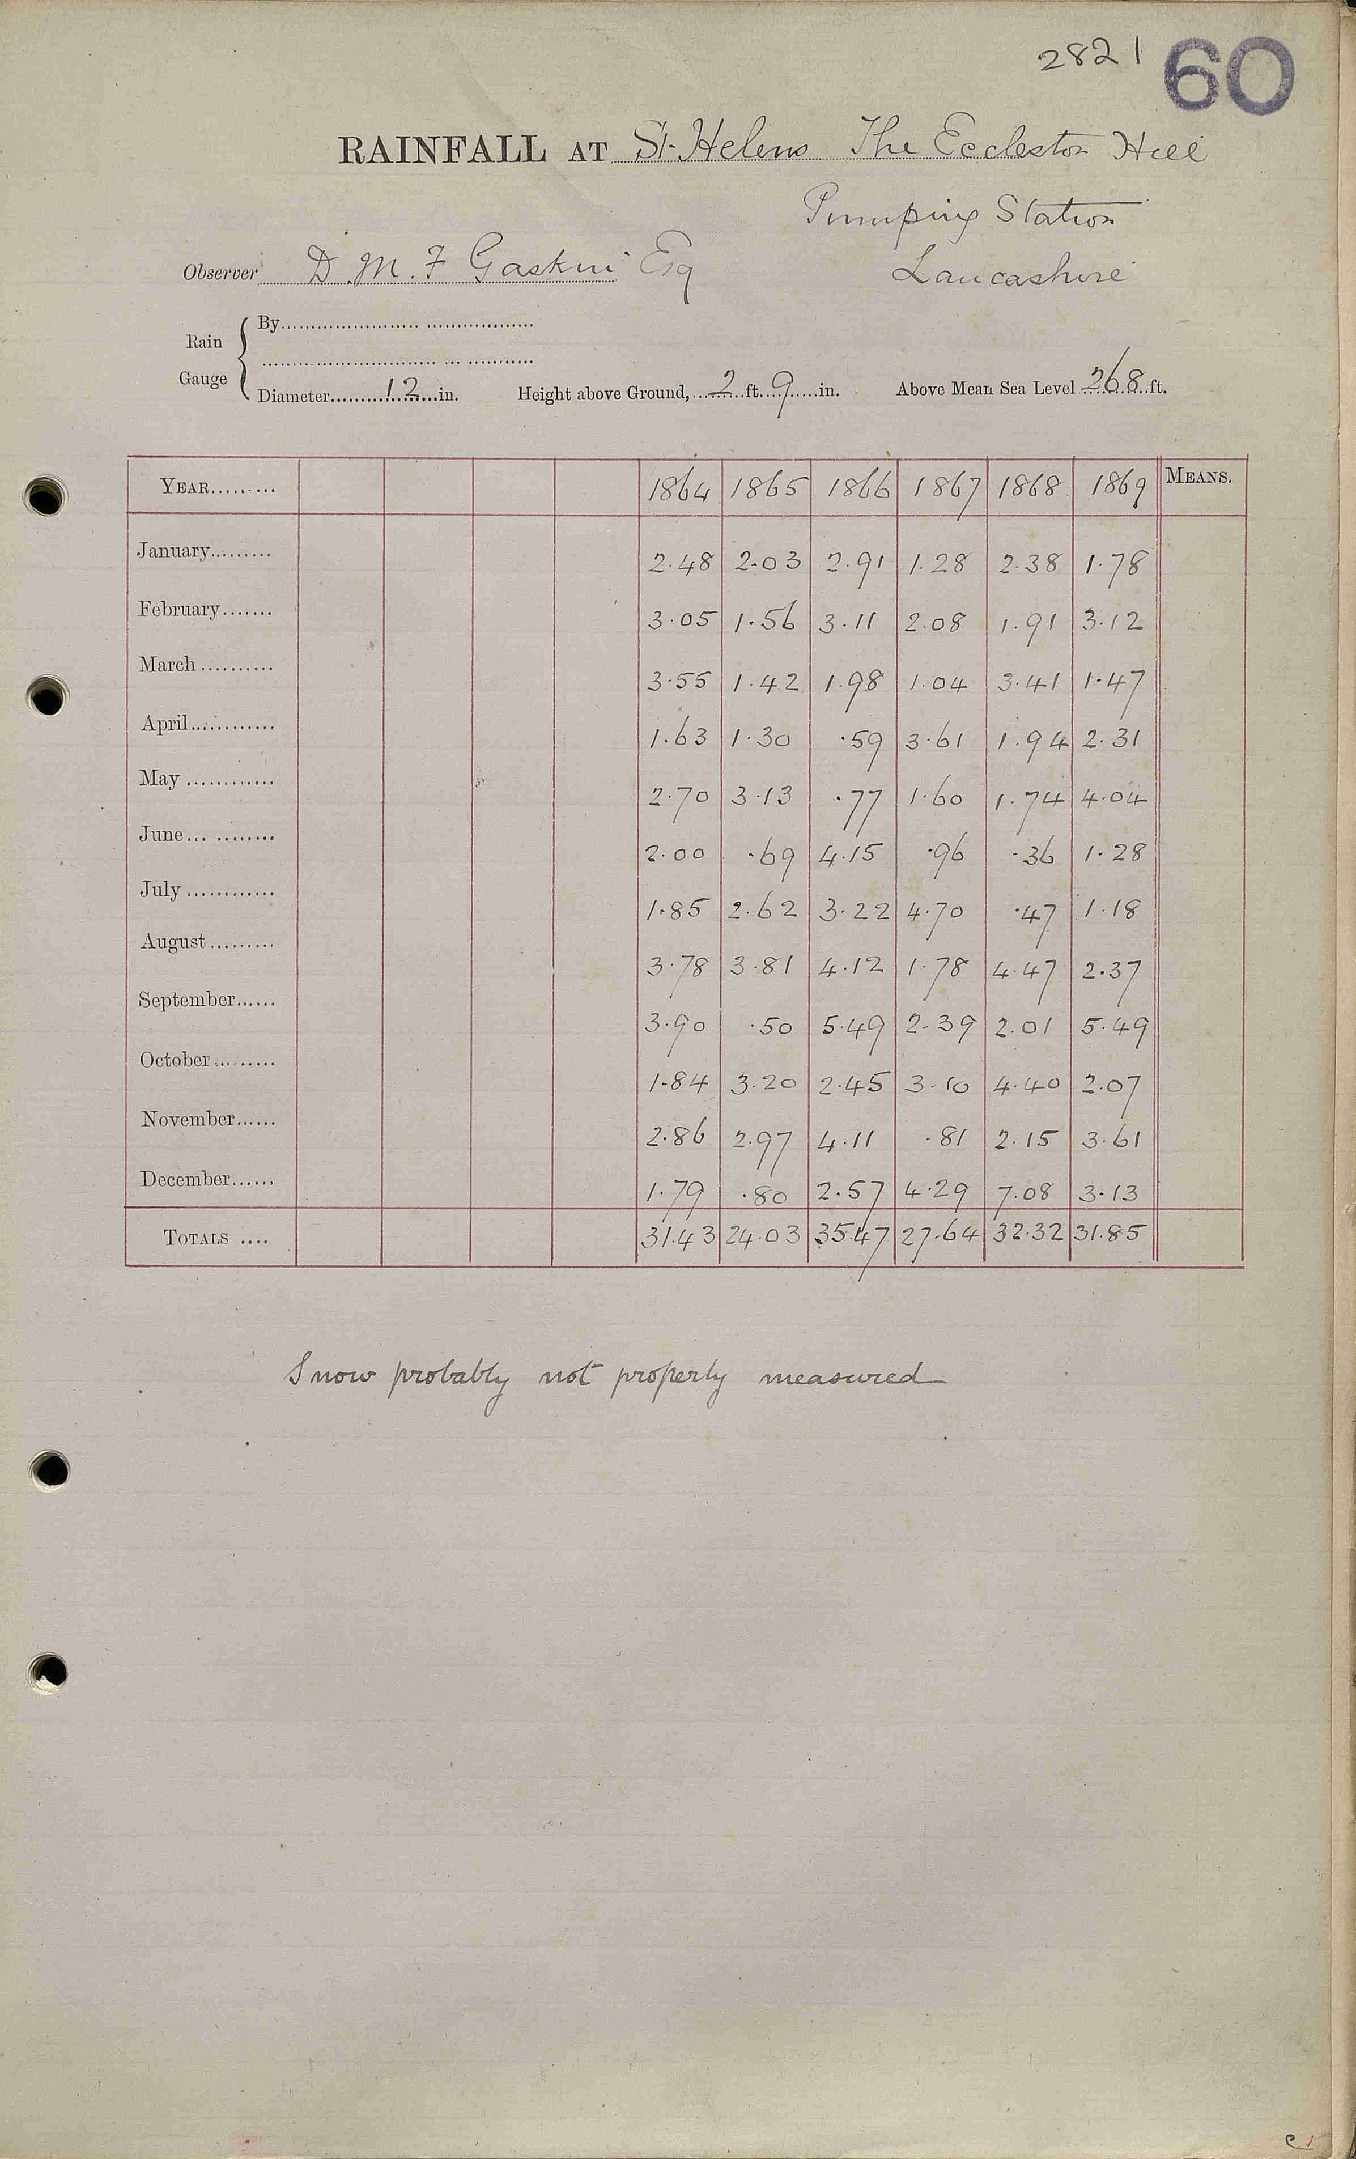 2821 60
RAINFALL AT St. Helens The Eccleston Hill
Pumping Station
Observer D. M. F Gaskin Esq Lancashire
Rain Gauge
By
Diameter 12 in. Height above Ground, 2 ft. 9 in. Above Mean Sea Level 268 ft.
YEAR 1864 1865 1866 1867 1868 1869 MEANS.
January 2.48 2.03 2.91 1.28 2.38 1.78
February 3.05 1.56 3.11 2.08 1.91 3.12
March 3.55 1.42 1.98 1.04 3.41 1.47
April 1.63 1.30 .59 3.61 1.94 2.31
May 2.70 3.13 .77 1.60 1.74 4.04
June 2.00 .69 4.15 .96 .36 1.28
July 1.85 2.62 3.22 4.70 .47 1.18
August 3.78 3.81 4.12 1.78 4.47 2.37
September 3.90 .50 5.49 2.39 2.01 5.49
October 1.84 3.20 2.45 3.10 4.40 2.07
November 2.86 2.97 4.11 .81 2.15 3.61
December 1.79 .80 2.57 4.29 7.08 3.13
TOTALS 31.43 24.03 35.47 27.64 32.32 31.85
Snow probably not properly measured